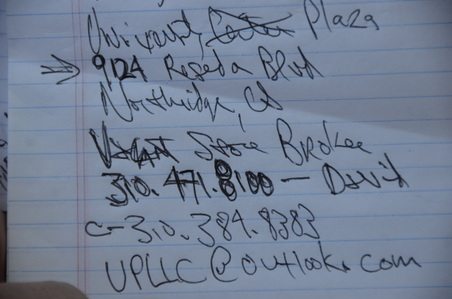 Plaza
9124 Reseda Blvd
Northridge, CA
Vacant Store Broker
310.471.8100 — David
c-310.384.8383
UPLLC@outlook.com